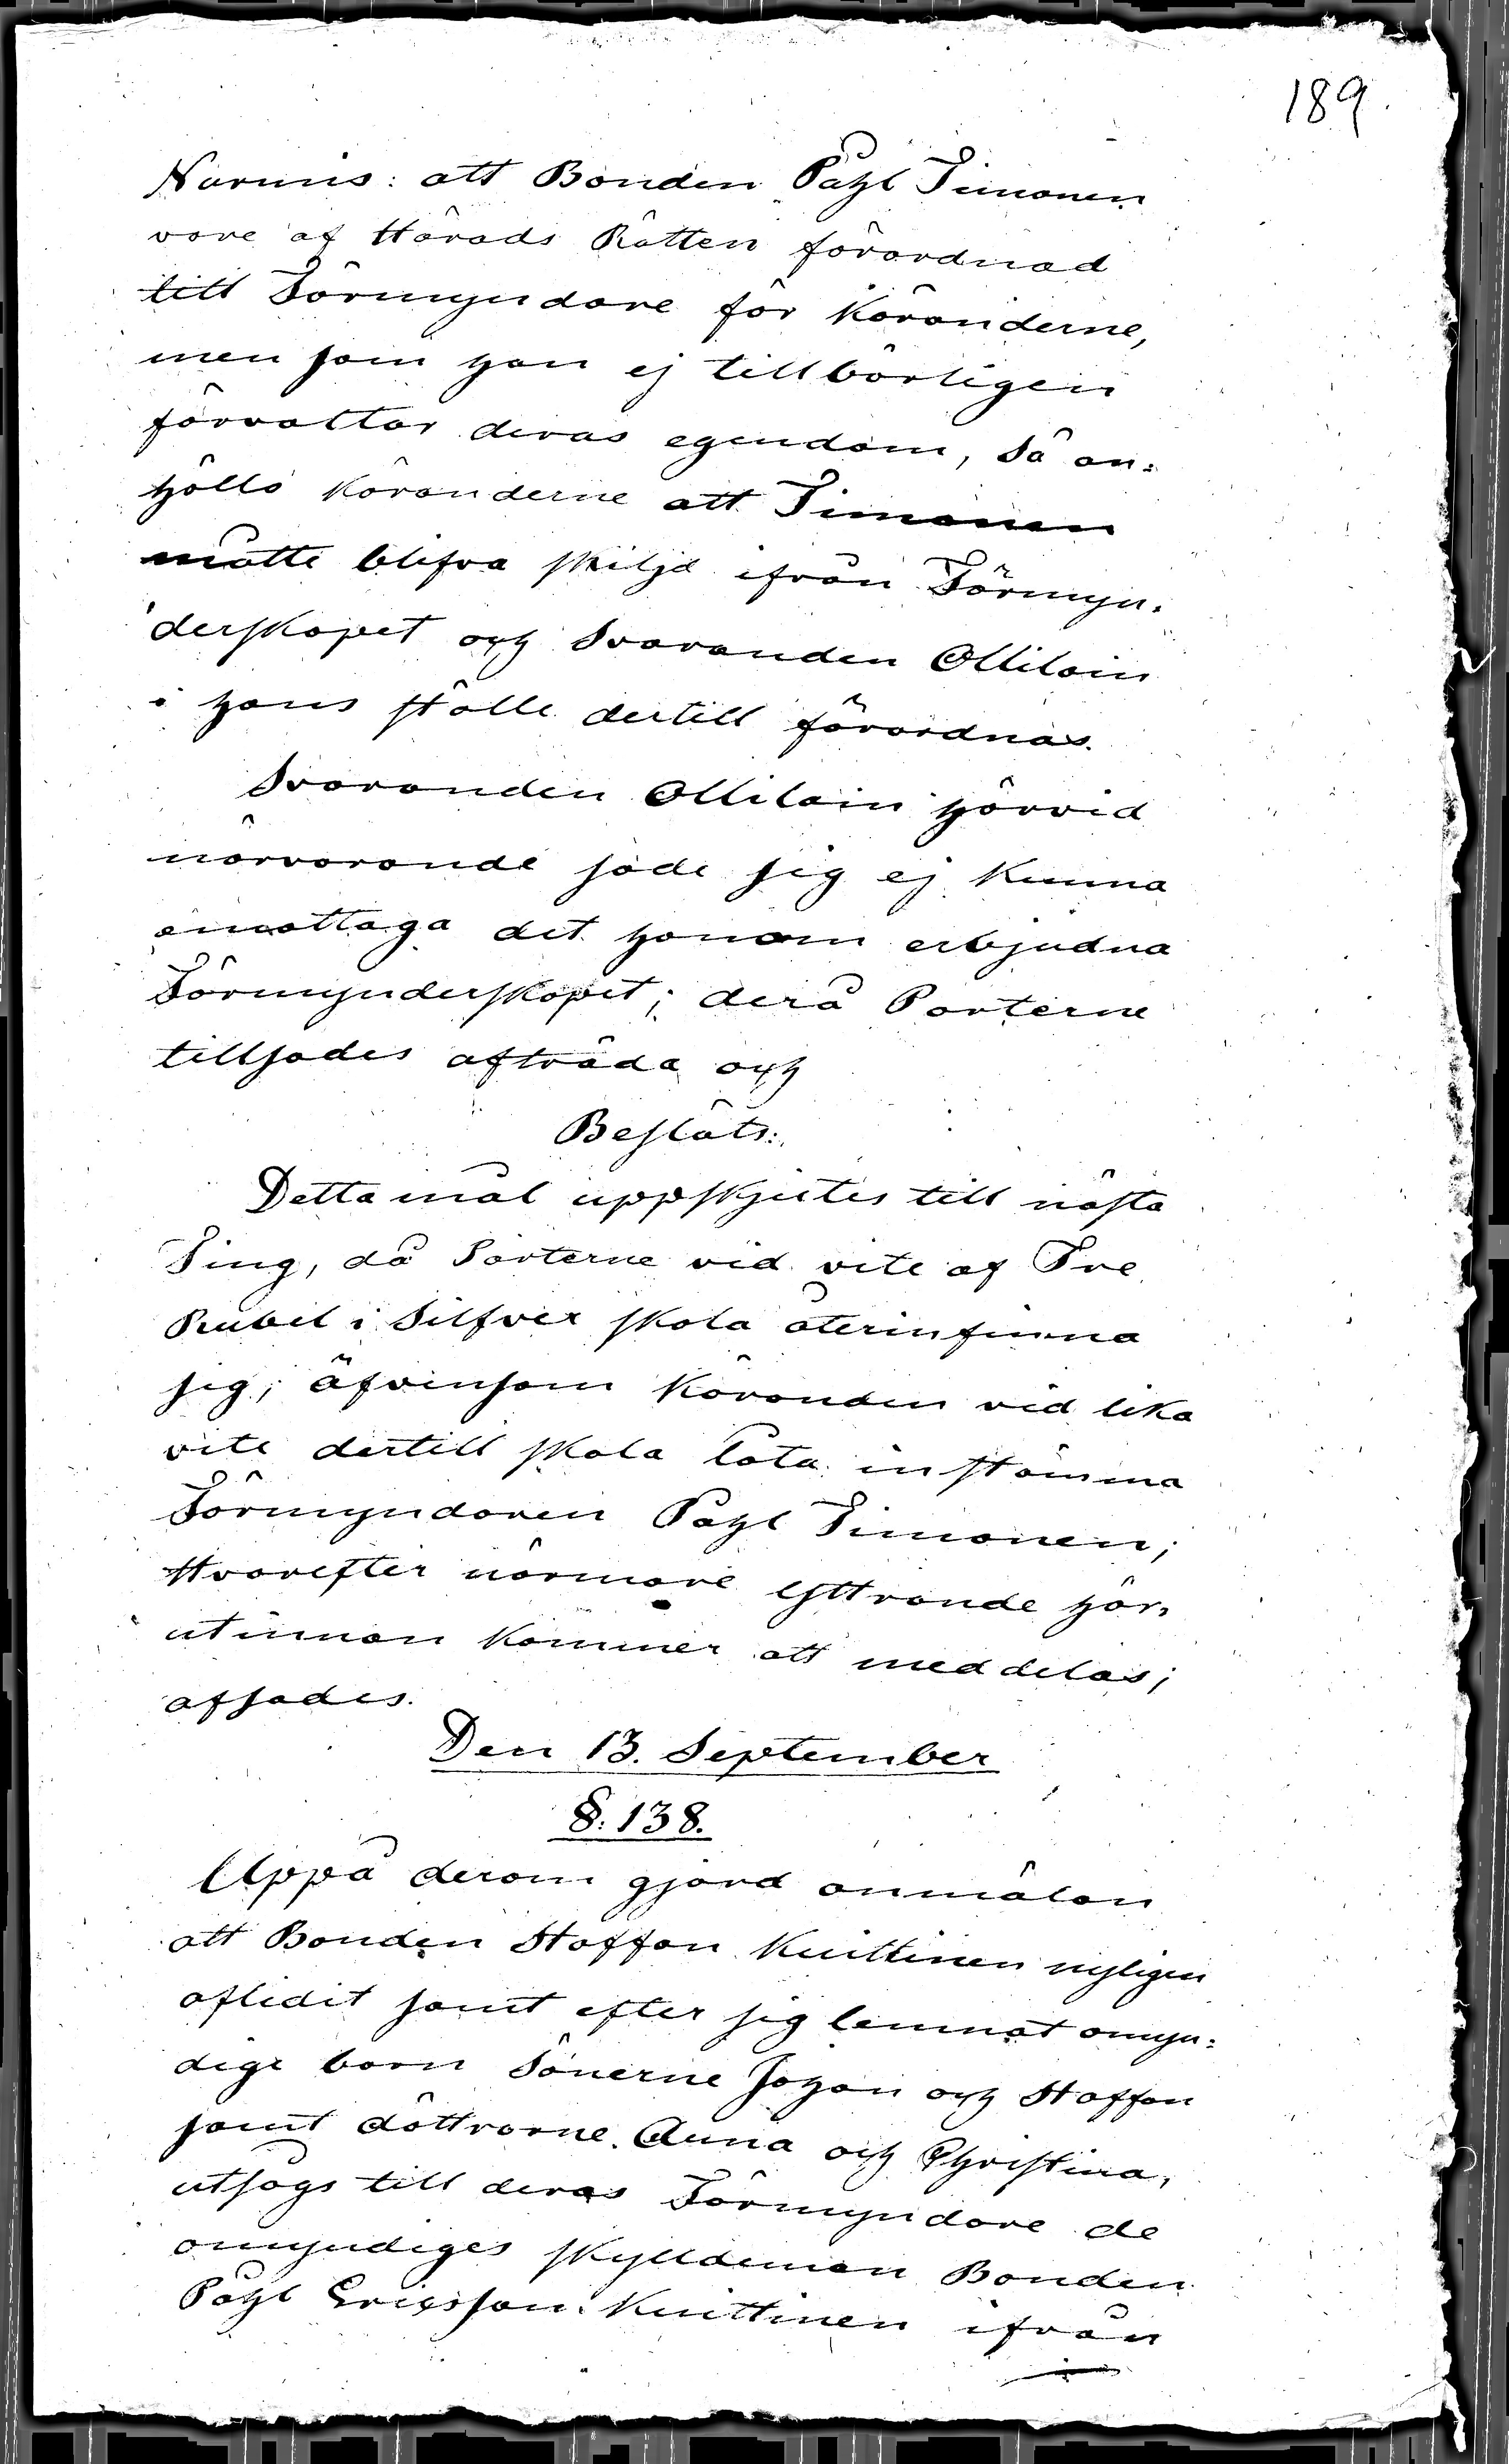 189.
Nurmis: att Bonden Påhl Timonen
vore af Härads Rätten förordnad
till Förmyndare för Käranderne,
men som han ej tillbörligen
förvaltar deras egendom, så an=
höllo Käranderne att Timonen
måtte blifva skiljd ifrån Förmyn=
derskapet och Svaranden Ollilain
i hans ställe dertill förordnas.
Svaranden Ollilain härvid
närvarande sade sig ej kunna
emottaga det honom erbjudna
Förmynderskapet; derå Parterne
tillsades afträda och
Beslöts:
Detta mål uppskjutes till nästa
Ting, då Parterne vid vite af Tre
Rubel i Silfver skola återinfinna
sig; äfvensom Käranden vid lika
vite dertill skola låta instämma
Förmyndaren Påhl Timonen;
Hvarefter närmare yttrande här=
utinnan kommer att meddelas;
afsades.
Den 13. September
§. 138.
Uppå derom gjord anmälan
att Bonden Staffan Kuittinen nyligen
aflidit samt efter sig lemnat omyn=
dige barn Sönerne Johan och Staffan
samt döttrarne Anna och Christina,
utsågs till deras Förmyndare de
omyndiges skyldeman Bonden
Påhl Ericsson Kuittinen ifrån